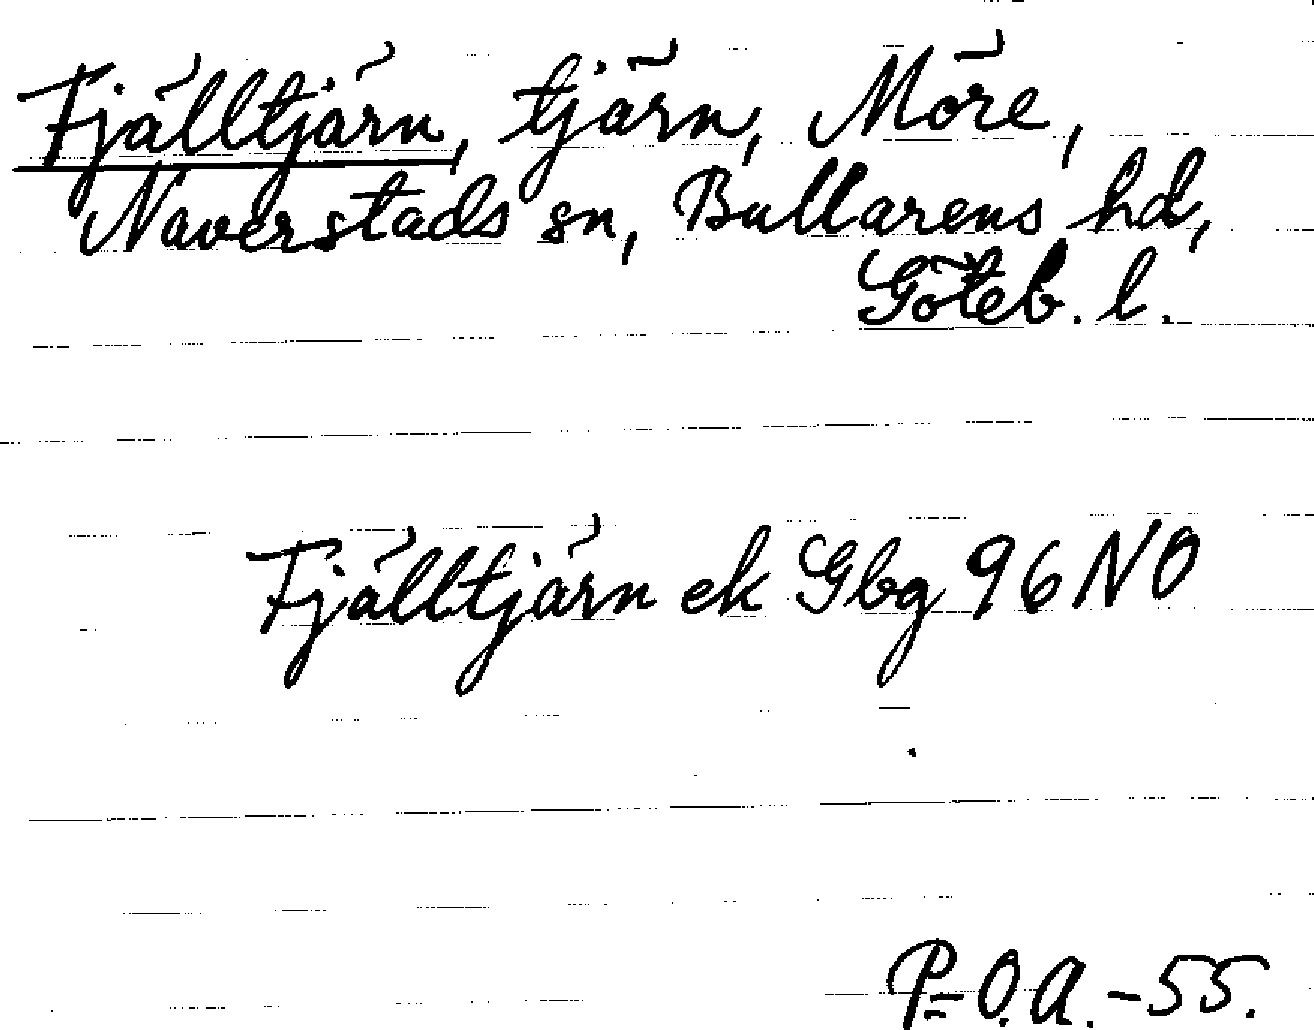 Fjälltjärn, tjärn, Möre,
Naverstads sn, Bullarens hd,
Göteb. l.
Fjälltjärn ek Gbg 96 NO
P-O.A.-55.